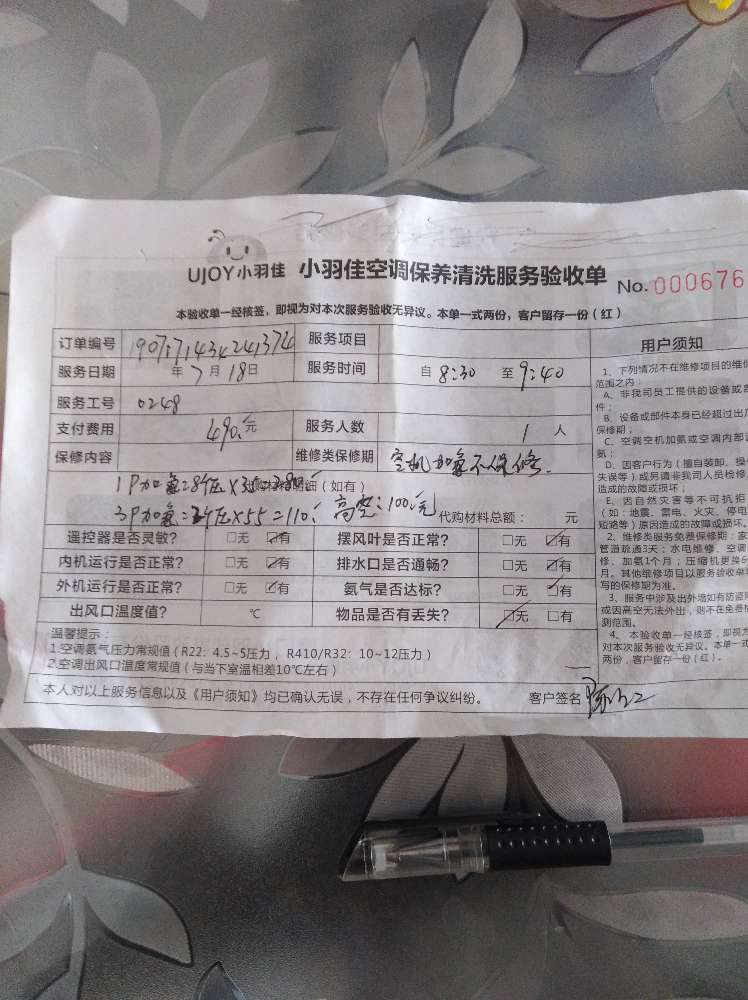 UJOY小羽佳 小羽佳空调保养清洗服务验收单 No.000676
本验收单一经核签，即视为对本次服务验收无异议。本单一式两份，客户留存一份（红）
订单编号 190717143424137 服务项目
服务日期 年7月18日 服务时间 自8:30 至9:40
服务工号 0248
支付费用 490.元 服务人数 1人
保修内容 维修类保修期 空机加氨不保修.
1P加氨:8个压×35=280. 明细（如有）
3P加氨:2个压×55=110. 高空:100.元 代购材料总额： 元
遥控器是否灵敏？ □无 ☑有 摆风叶是否正常？ □无 ☑有
内机运行是否正常？ □无 ☑有 排水口是否通畅？ □无 ☑有
外机运行是否正常？ □无 ☑有 氨气是否达标？ □无 ☑有
出风口温度值？ ℃ 物品是否有丢失？ ☑无 □有
温馨提示：
1.空调氨气压力常规值（R22：4.5~5压力，R410/R32：10~12压力）
2.空调出风口温度常规值（与当下室温相差10℃左右）
本人对以上服务信息以及《用户须知》均已确认无误，不存在任何争议纠纷。 客户签名
用户须知
1、下列情况不在维修项目的维保
范围之内：
A、非我司员工提供的设备或
件；
B、设备或部件本身已经超过出厂
保修期；
C、空调空机加氨或空调内部
氨；
D、因客户行为（擅自装卸、操
失误等）或另请非我司人员检修
造成的故障或损坏；
E、因自然灾害等不可抗拒
（如：地震、雷电、火灾、停电
短路等）原因造成的故障或损坏。
2、维修类服务免费保修期：家
管道疏通3天；水电维修、空调
修、加氨1个月；压缩机更换
月。其他维修项目以服务验收单
写的保修期为准。
3、服务中涉及出外墙如有防盗
或因高空无法外出，则不在免费
测范围。
4、本验收单一经核签，即视为
对本次服务验收无异议。本单一式
两份，客户留存一份（红）。